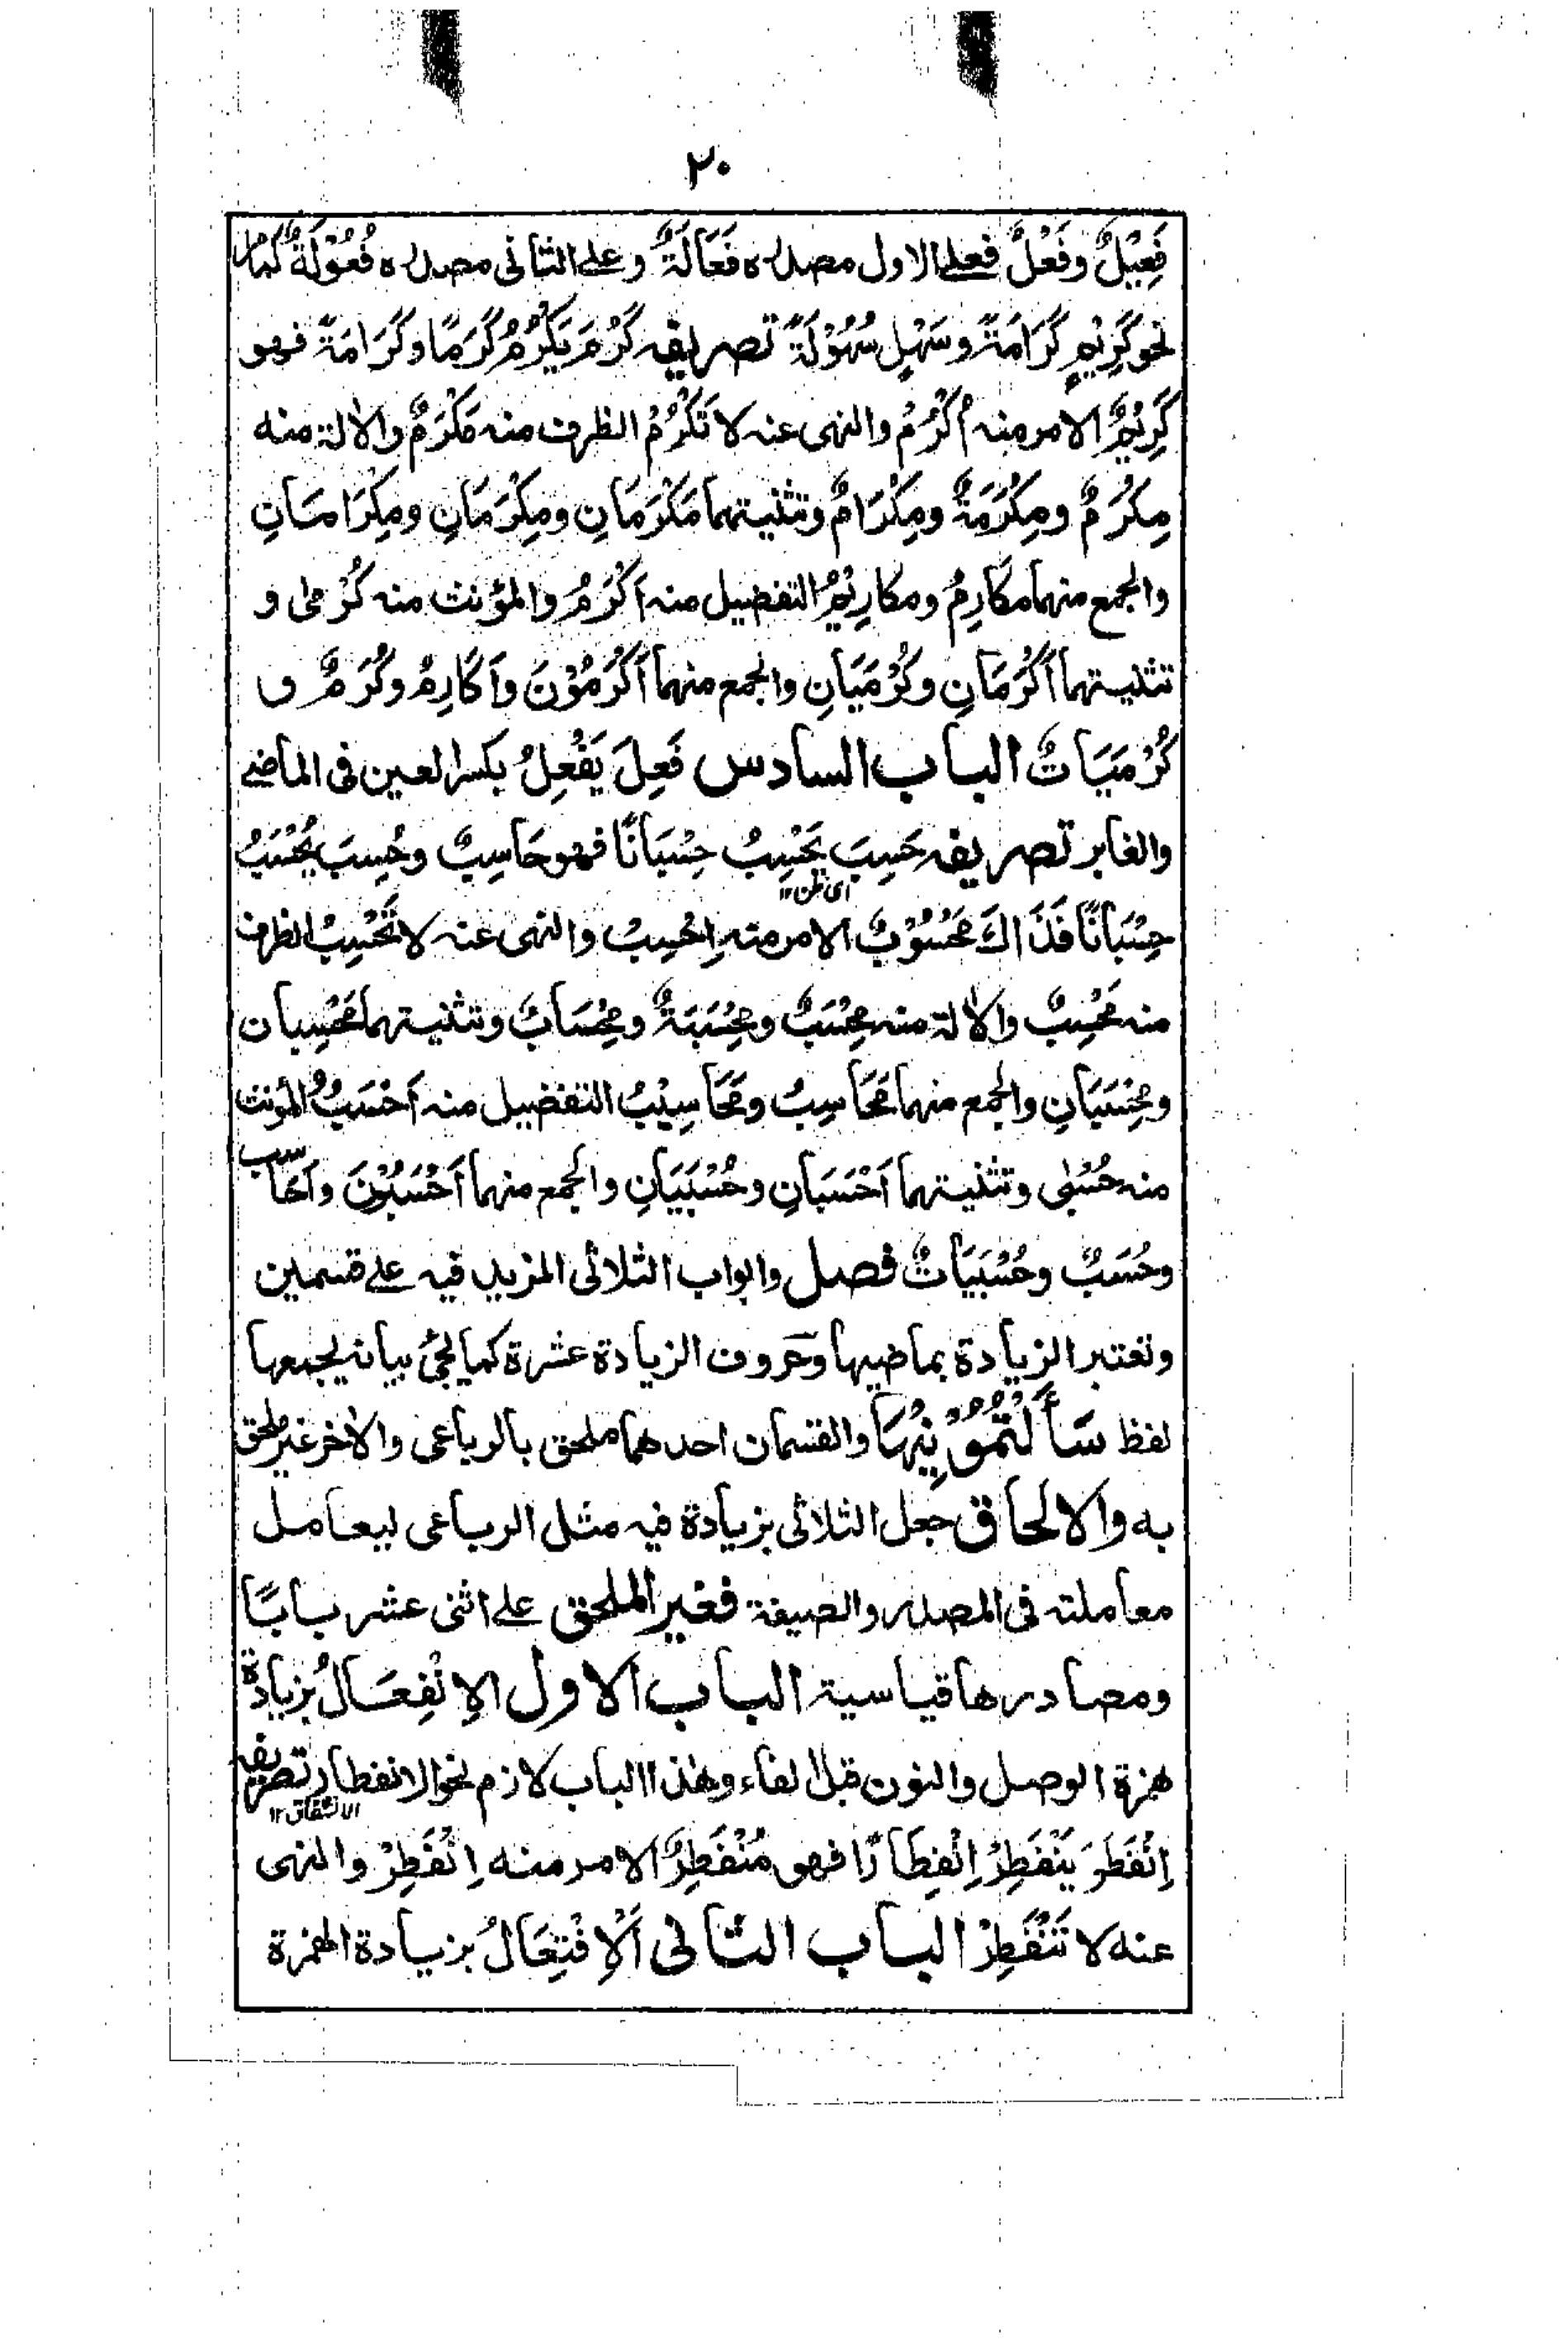 ٢٠
فَعِيْلٌ وفَعْلٌ فعلى الاول مصدره فَعَالَةٌ وعلى الثانى مصدره فُعُوْلَةٌ
نحو كَرِيْمٍ كَرَامَةً وسَهْلٍ سُهُوْلَةً تصريفه كَرُمَ يَكْرُمُ كَرَمًا وكَرَامَةً فهو
كَرِيْمٌ الامر منه اُكْرُمْ والنهى عنه لا تَكْرُمْ الظرف منه مَكْرَمٌ والالة منه
مِكْرَمٌ ومِكْرَمَةٌ ومِكْرَامٌ وتثنيتهما مَكْرَمَانِ ومِكْرَمَانِ ومِكْرَامَانِ
والجمع منهما مَكَارِمُ ومكارِيْمُ التفضيل منه اَكْرَمُ والمؤنث منه كُرْمٰى و
تثنيتهما اَكْرَمَانِ وكُرْمَيَانِ والجمع منهما اَكْرَمُوْنَ واَكَارِمُ وكُرَمٌ و
كُرْمَيَاتٌ الباب السادس فَعِلَ يَفْعِلُ بكسر العين فى الماضى
والغابر تصريفه حَسِبَ يَحْسِبُ حِسْبَانًا فهو حَاسِبٌ وحُسِبَ يُحْسَبُ
اى ظن ١٢
حِسْبَانًا فَذَاكَ مَحْسُوْبٌ الامر منه اِحْسِبْ والنهى عنه لا تَحْسِبْ الظرف
منه مَحْسِبٌ والالة منه مِحْسَبٌ ومِحْسَبَةٌ ومِحْسَابٌ وتثنيتهما مَحْسِبان
ومِحْسَبَانِ والجمع منهما مَحَاسِبُ ومَحَاسِيْبُ التفضيل منه اَحْسَبُ والمؤنث
منه حُسْبٰى وتثنيتهما اَحْسَبَانِ وحُسْبَيَانِ والجمع منهما اَحْسَبُوْنَ واَحَاسب
وحُسَبٌ وحُسْبَيَاتٌ فصل وابواب الثلاثى المزيد فيه على قسمين
وتعتبر الزيادة بماضيها وحروف الزيادة عشرة كما يجئ بيانه يجمعها
لفظ سَأَلْتُمُوْنِيْهَا والقسمان احدهما ملحق بالرباعى والاخر غير ملحق
به والالحاق جعل الثلاثى بزيادة فيه مثل الرباعى ليعامل
معاملته فى المصدر والصيغة فغير الملحق على اثنى عشر بابًا
ومصادرها قياسية الباب الاول الاِنْفِعَالُ بزيادة
همزة الوصل والنون قبل الفاء وهذا الباب لازم نحو الانفطار تصريفه
الانشقاق ١٢
اِنْفَطَرَ يَنْفَطِرُ اِنْفِطَارًا فهو مُنْفَطِرٌ الامر منه اِنْفَطِرْ والنهى
عنه لا تَنْفَطِرْ الباب الثانى اَلْاِفْتِعَالُ بزيادة الهمزة